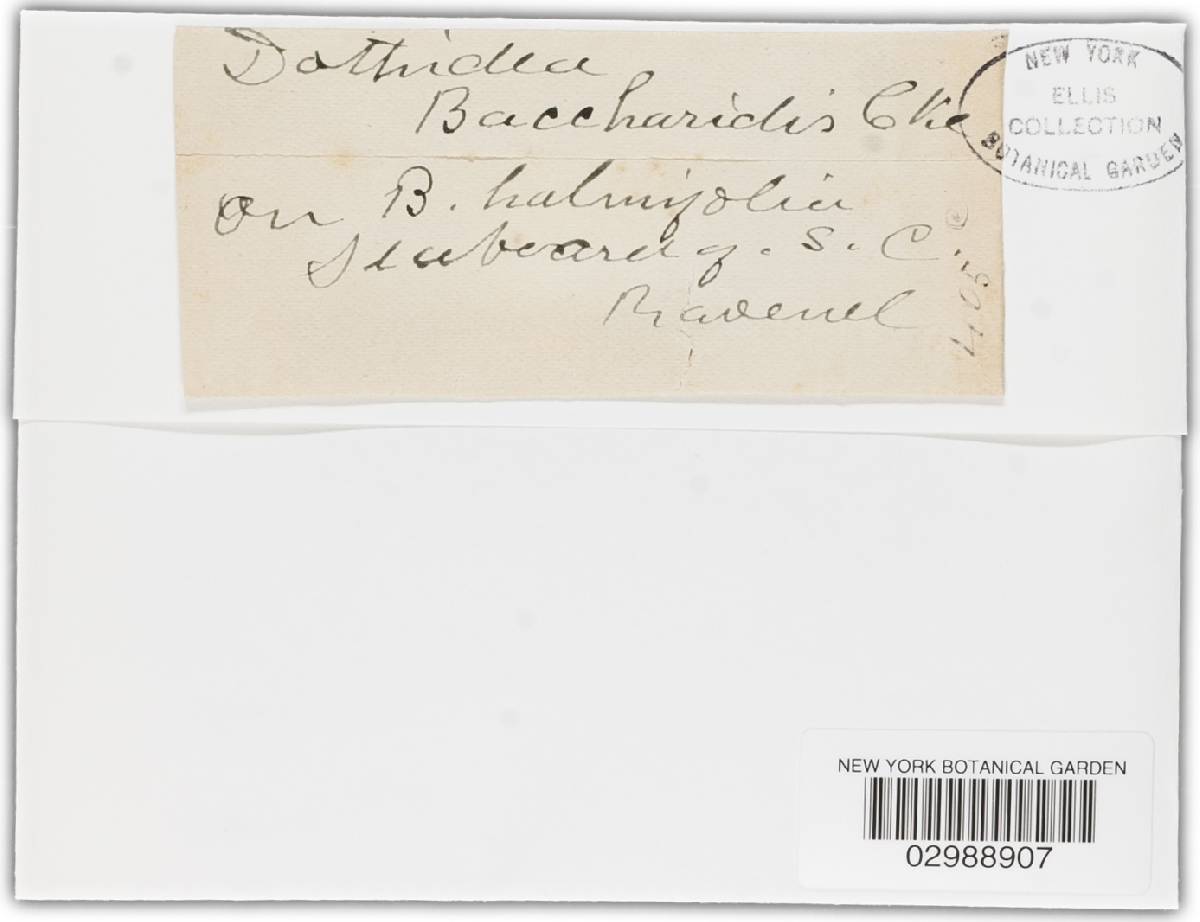 Dothidea
Baccharidis Cke
on B. halmifolia
Seaboard of. S. C.
Ravenel
NEW YORK
ELLIS
COLLECTION
BOTANICAL GARDEN
NEW YORK BOTANICAL GARDEN
02988907